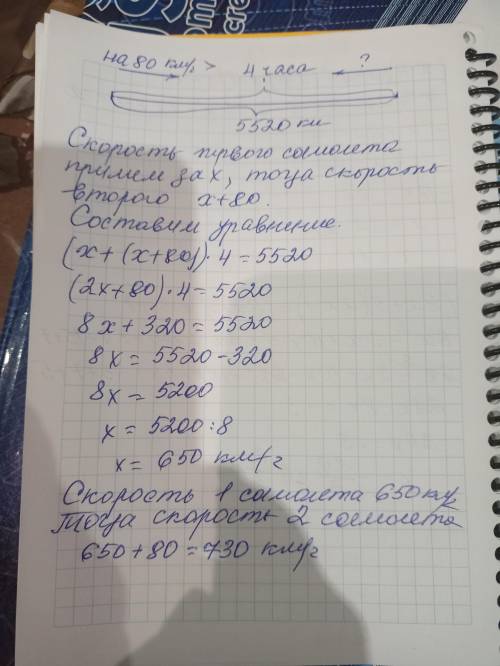 на 80 км/ч > 4 часа ?
5520 км
Скорость первого самолета
примем за х, тогда скорость
второго х+80.
Составим уравнение.
(х+(х+80))·4=5520
(2х+80)·4=5520
8х+320=5520
8х=5520-320
8х=5200
х=5200:8
х=650 км/ч
Скорость 1 самолета 650 км/ч
Тогда скорость 2 самолета
650+80=730 км/ч